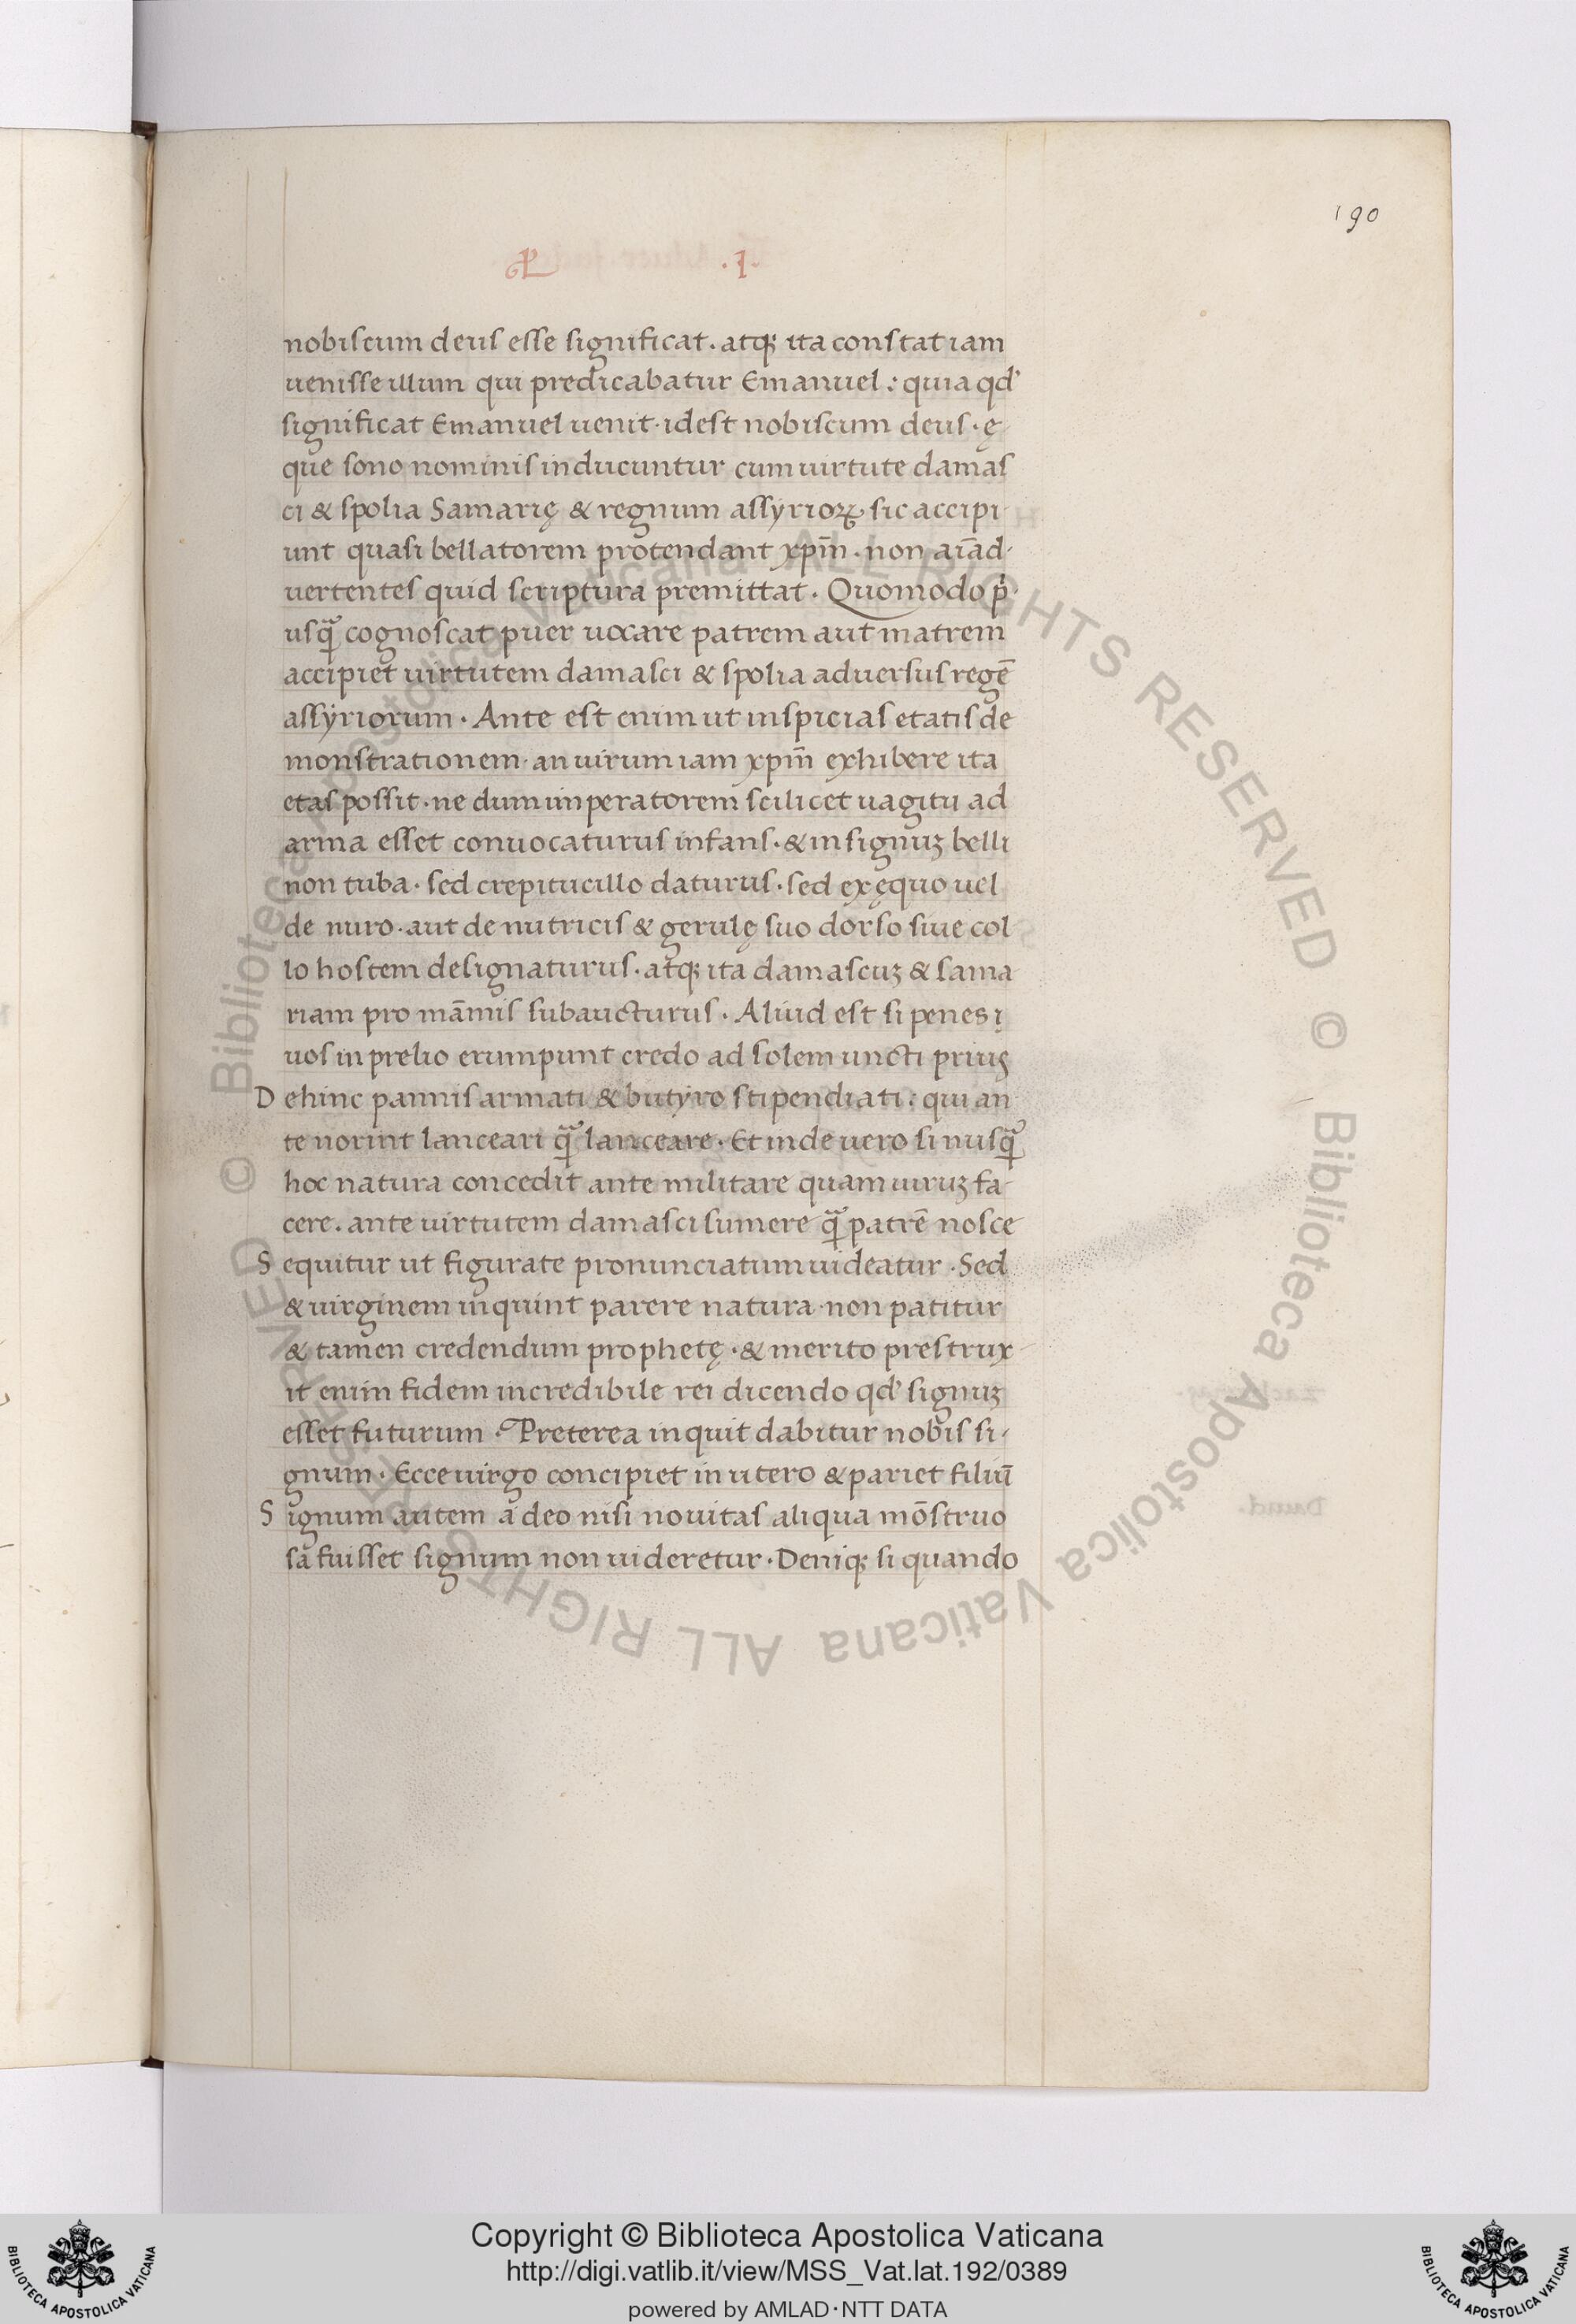 190
.I.
nobiscum deus esse significat. atq; ita constat iam
uenisse illum qui predicabatur Emanuel: quia qd'
significat Emanuel uenit· idest nobiscum deus· ę
que sono nominis inducuntur cum uirtute damas
ci & spolia Samarię & regnum assyrioꝝ sic accipi-
unt quasi bellatorem protendant xp̄m· non aīad-
uertentes quid scriptura premittat. Quomodo p̄·
usꝗ̃ cognoscat puer uocare patrem aut matrem
accipiet uirtutem damasci & spolia aduersus regē
assyriorum· Ante est enim ut inspicias etatis de
monstrationem· an uirum iam xp̄m exhibere ita
etas possit· ne dum imperatorem scilicet uagitu ad
arma esset conuocaturus infans· & in signuꝫ belli
non tuba· sed crepitucillo daturus· sed ex ęquo uel
de nuro· aut de nutricis & gerulę suo dorso siue col
lo hostem designaturus· atq; ita damascuꝫ & sama
riam pro māmis subaucturus· Aliud est si penes ę
uos in prelio erumpunt credo ad solem uncti priuꝫ
Dehinc pannis armati & butyro stipendiati: qui an
te norint lanceari ꝗ̃ lanceare· Et inde uero si nusꝗ̃
hoc natura concedit ante militare quam uiruꝫ fa-
cere. ante uirtutem damasci sumere ꝗ̃ patrē nosce
Sequitur ut figurate pronunciatum uideatur· Sed
& uirginem inquint parere natura· non patitur
& tamen credendum prophetę· & merito prestrux-
it enim fidem incredibile rei dicendo qd' signuꝫ
esset futurum· Preterea inquit dabitur nobis si-
gnum· Ecce uirgo concipiet in utero & pariet filiū
Signum autem a deo nisi nouitas aliqua mōstruo
sa fuisset signum non uideretur· Deniq; si quando
© Biblioteca Apostolica Vaticana ALL RIGHTS RESERVED
© Biblioteca Apostolica Vaticana ALL RIGHTS RESERVED
BIBLIOTECA APOSTOLICA VATICANA
Copyright © Biblioteca Apostolica Vaticana
http://digi.vatlib.it/view/MSS_Vat.lat.192/0389
powered by AMLAD·NTT DATA
BIBLIOTECA APOSTOLICA VATICANA